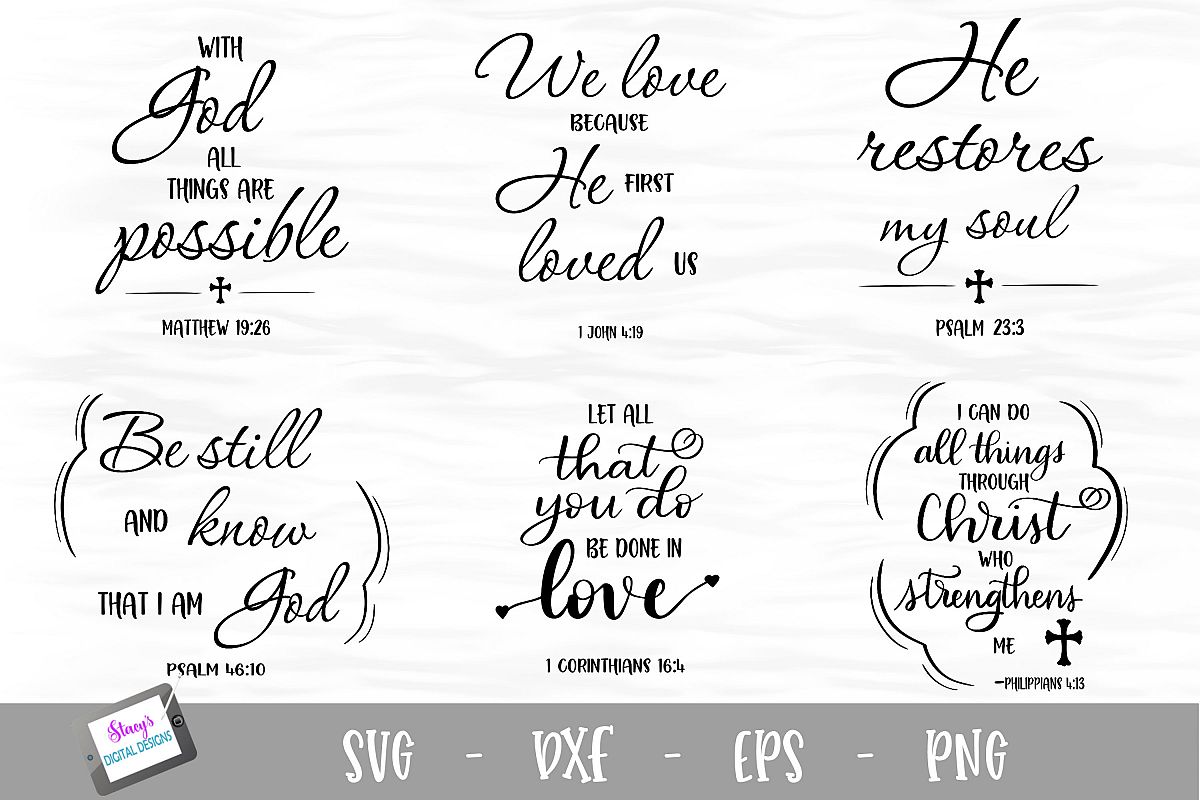 WITH
God
ALL
THINGS ARE
possible
MATTHEW 19:26
We love
BECAUSE
He FIRST
loved US
1 JOHN 4:19
He
restores
my soul
PSALM 23:3
Be still
AND know
THAT I AM God
PSALM 46:10
LET ALL
that
you do
BE DONE IN
love
1 CORINTHIANS 16:4
I CAN DO
all things
THROUGH
Christ
WHO
strengthens
ME
—PHILIPPIANS 4:13
Stacy's
DIGITAL DESIGNS
SVG - DXF - EPS - PNG